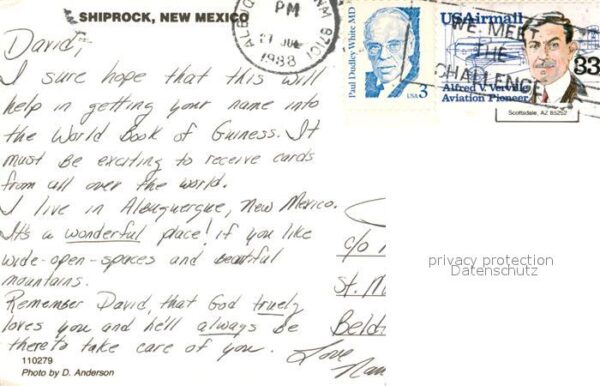 SHIPROCK, NEW MEXICO
PM
1988
David,
I sure hope that this will
help in getting your name into
the World Book of Guiness. It
must be exciting to receive cards
from all over the world.
I live in Albuquerque, New Mexico.
It's a wonderful place! if you like
wide-open-spaces and beautiful
mountains.
Remember David, that God truely
loves you and he'll always be
there to take care of you.
Love
110279
Photo by D. Anderson
Paul Dudley White MD
USA 3
USAirmail
33
Alfred V. Verville
Aviation Pioneer
WE MEET
THE
CHALLENGE
Scottsdale, AZ 85252
c/o
St.
privacy protection
Datenschutz